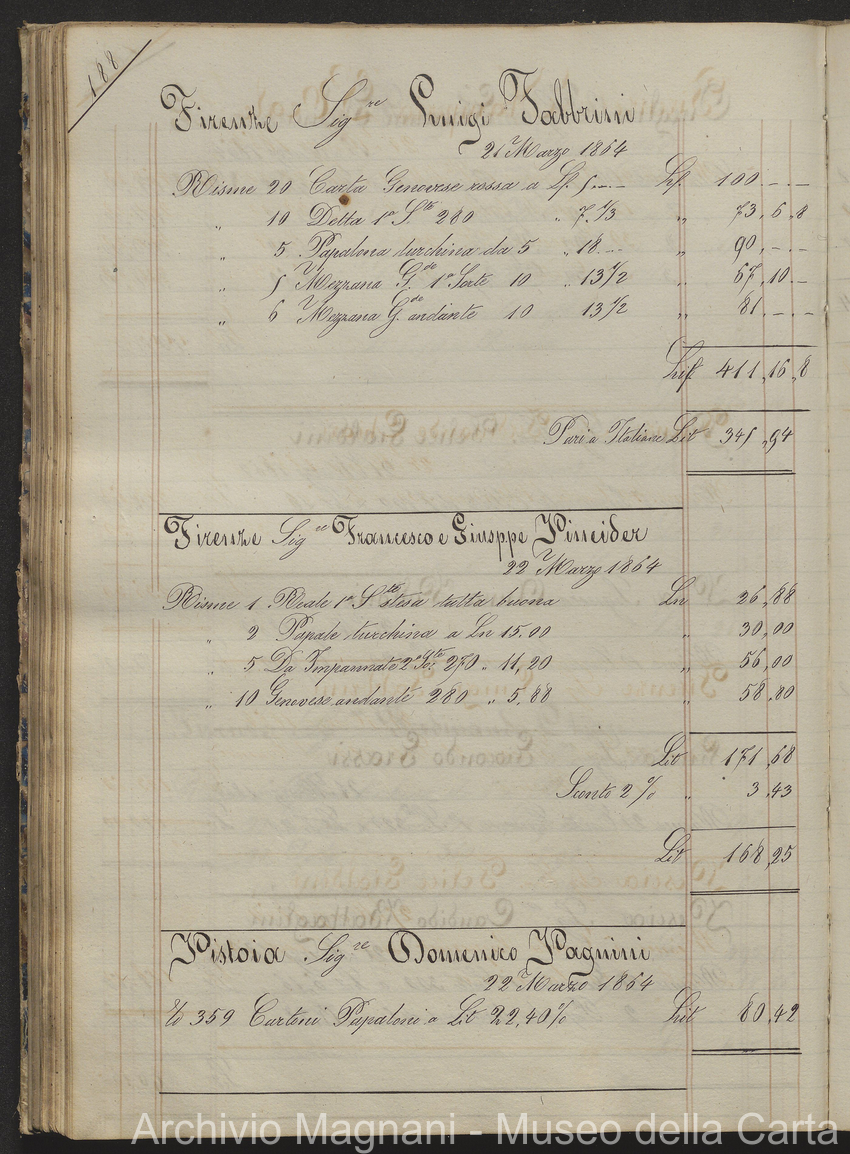 188
Firenze Sig.re Luigi Fabbrini
21 Marzo 1864
Risme 20 Carta Genovese rossa a Lf. 5.-.- Lf. 100.-.-
„ 10 Detta 1a S.te 280 „ 7.1/3 „ 73„6„8
„ 5 Papalona turchina da 5 „ 18.-.- „ 90„-.-
„ 5 Mezzana G.de 1a Sorte 10 „ 13 1/2 „ 67„10.-
„ 6 Mezzana G.de andante 10 13 1/2 „ 81.-.-
411„16„8
Pari a Italiane Lit 345„94
Firenze Sig.re Francesco e Giuseppe Pineider
22 Marzo 1864
Risme 1 Reale 1a S.te stesa tutta buona Ln 26„88
„ 2 Papale turchina a Ln 15.00 „ 30„00
„ 5 Da Impannate 2a S.te 270 „ 11,20 „ 56„00
„ 10 Genovese andante 280 „ 5„88 „ 58„80
Lit 171„68
Sconto 2% „ 3„43
Lit 168„25
Pistoia Sig.re Domenico Pagnini
22 Marzo 1864
359 Cartoni Papaloni a Lit 22,40% Lit 80„42
Archivio Magnani - Museo della Carta